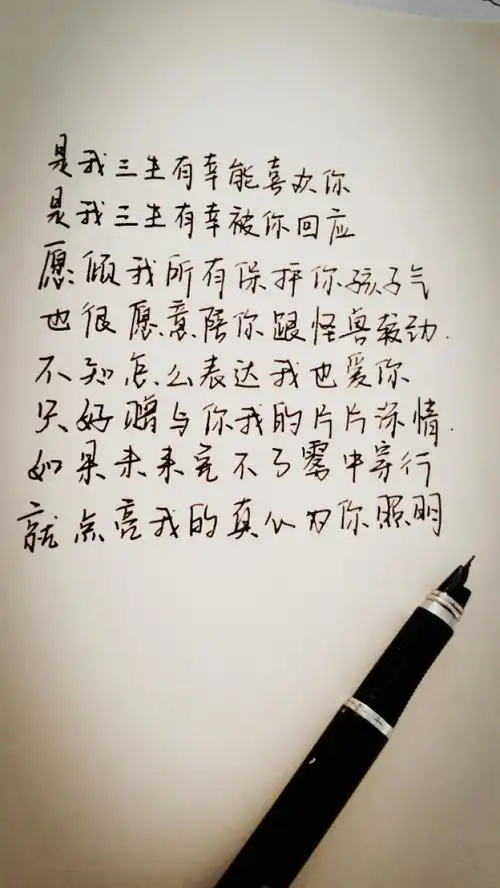 是我三生有幸能喜欢你
是我三生有幸被你回应
愿倾我所有保护你孩子气
也很愿意陪你跟怪兽较劲.
不知怎么表达我也爱你
只好赠与你我的片片深情.
如果未来免不了雾中穿行
就点亮我的真心为你照明